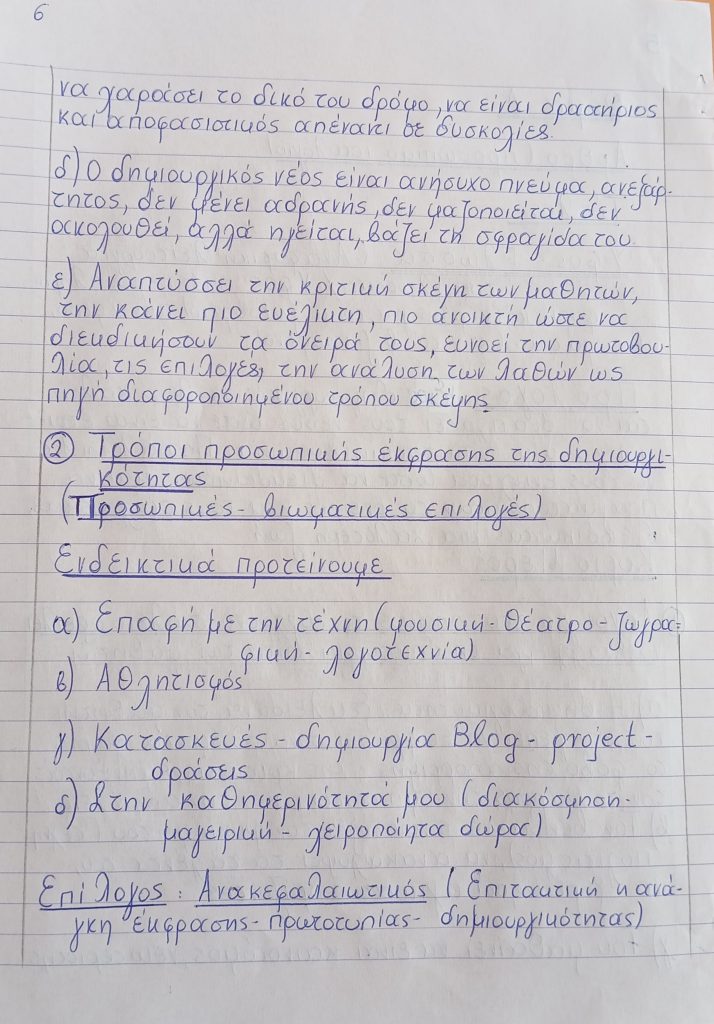 6
να χαράσει το δικό του δρόμο, να είναι δραστήριος
και αποφασιστικός απέναντι σε δυσκολίες.
δ) Ο δημιουργικός νέος είναι ανήσυχο πνεύμα, ανεξάρ-
τητος, δεν μένει αδρανής, δεν μαζοποιείται, δεν
ακολουθεί, αλλά ηγείται, βάζει τη σφραγίδα του.
ε) Αναπτύσσει την κριτική σκέψη των μαθητών,
την κάνει πιο ευέλικτη, πιο ανοικτή ώστε να
διεκδικήσουν τα όνειρά τους, ευνοεί την πρωτοβου-
λία, τις επιλογές, την ανάλυση των λαθών ως
πηγή διαφοροποιημένου τρόπου σκέψης
② Τρόποι προσωπικής έκφρασης της δημιουργι-
κότητας
(Προσωπικές - βιωματικές επιλογές)
Ενδεικτικά προτείνουμε
α) Επαφή με την τέχνη (μουσική - θέατρο - ζωγρα-
φική - λογοτεχνία)
β) Αθλητισμός
γ) Κατασκευές - δημιουργία Blog - project -
δράσεις
δ) Στην καθημερινότητά μου (διακόσμηση -
μαγειρική - χειροποίητα δώρα)
Επίλογος : Ανακεφαλαιωτικός (Επιτακτική η ανά-
γκη έκφρασης - πρωτοτυπίας - δημιουργικότητας)